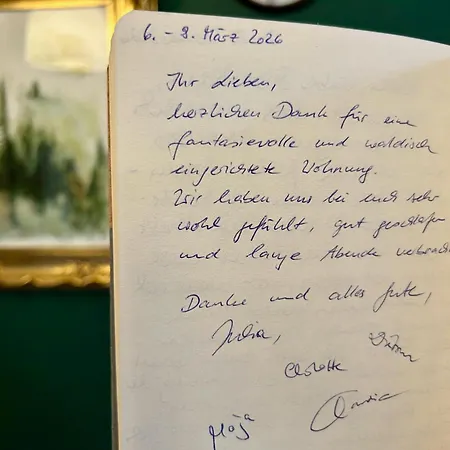 6. - 8. März 2026
Ihr Lieben,
herzlichen Dank für eine
fantasievolle und waldisch
eingerichtete Wohnung.
Wir haben uns bei euch sehr
wohl gefühlt, gut geschlafen
und lange Abende verbracht
Danke und alles Gute,
Julia,
Charlotte